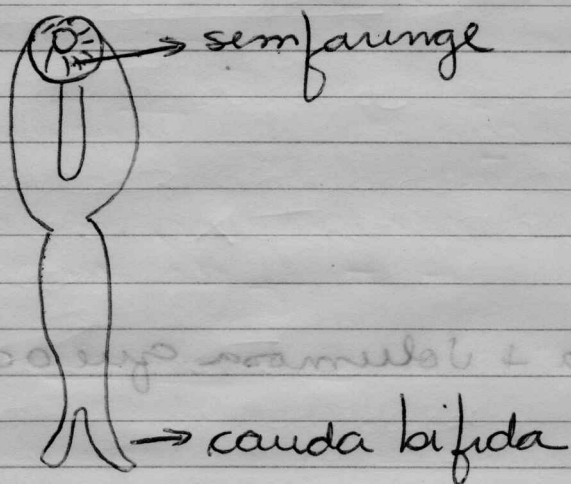 sem faringe
cauda bifida